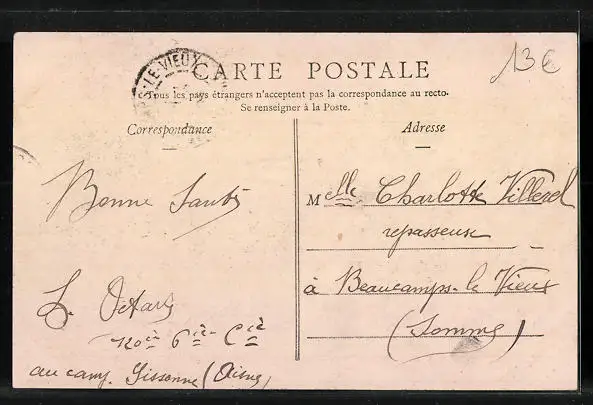 13€
-LE-VIEUX
CARTE POSTALE
Tous les pays étrangers n'acceptent pas la correspondance au recto.
Se renseigner à la Poste.
Correspondance
Adresse
Bonne Santé
Melle Charlotte Villerel
repasseuse
à Beaucamps-le Vieux
(Somme)
L. Octave
120è 6iè Cié
au camp Sissonne (Aisne)